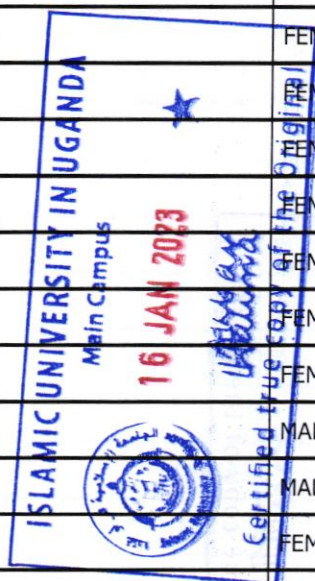 ISLAMIC UNIVERSITY IN UGANDA
Main Campus
16 JAN 2023
Certified true copy of the Original
FEM
FEM
FEM
FEM
FEM
FEM
FEM
MAL
MAL
FEM